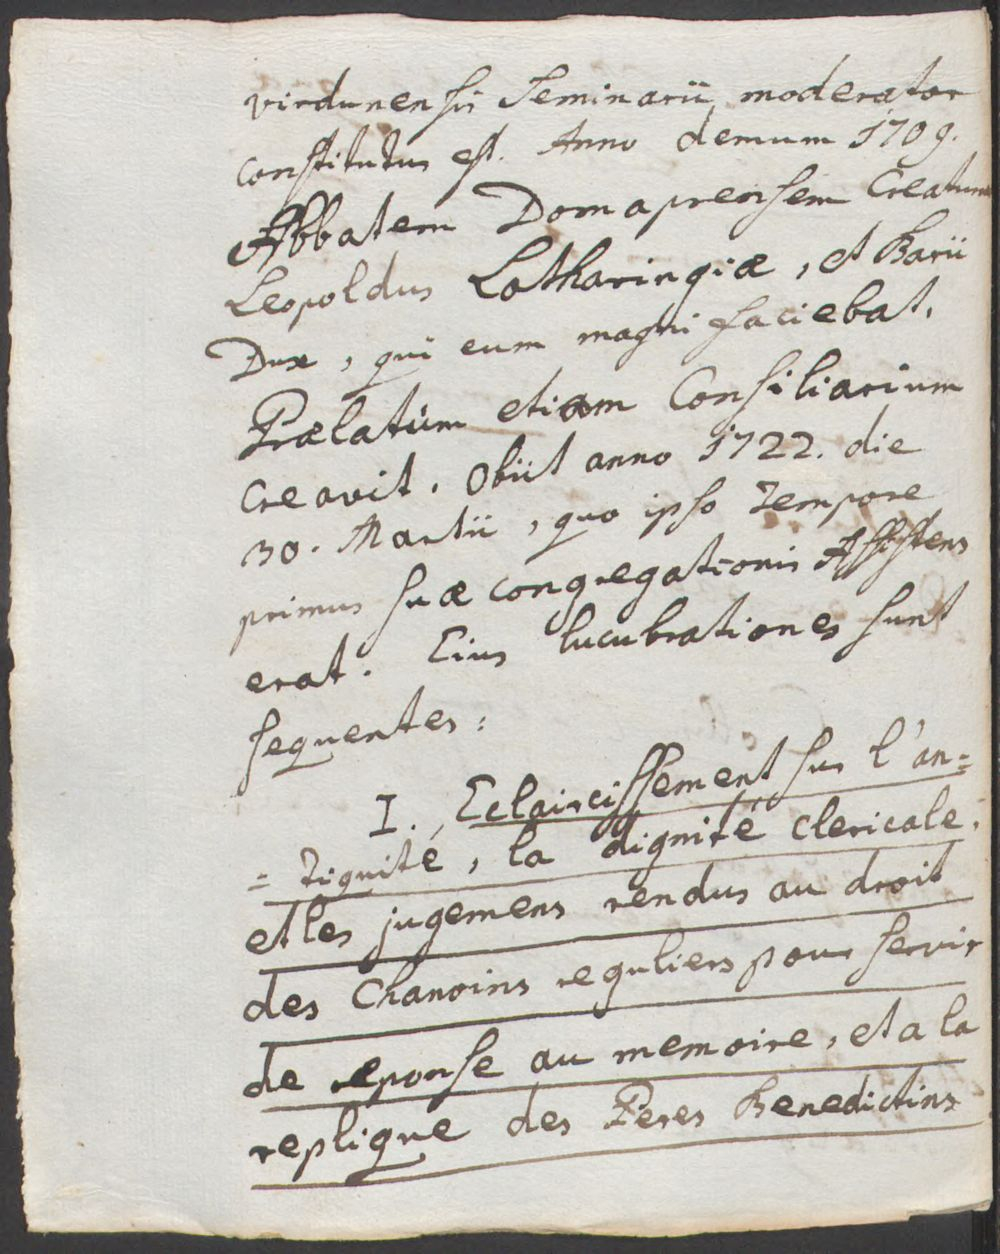 virdunensis Seminarii moderator
constitutus est. Anno demum 1709.
Abbatem Domaprensem Creatum
Leopoldus Lotharingiæ, et Barii
Dux, qui eum magni faciebat,
Prælatum etiam Consiliarium
Creavit. Obiit anno 1722. die
30. Martii, quo ipso Tempore
primus suæ congregationis Assistens
erat. Eius lucubrationes sunt
sequentes:
I. Eclaircissement sur l'an=
=tiquité, la dignité clericale,
et les jugemens rendus au droit
des Chanoins reguliers pour servir
de reponse au memoire, et a la
replique des Peres Benedictins